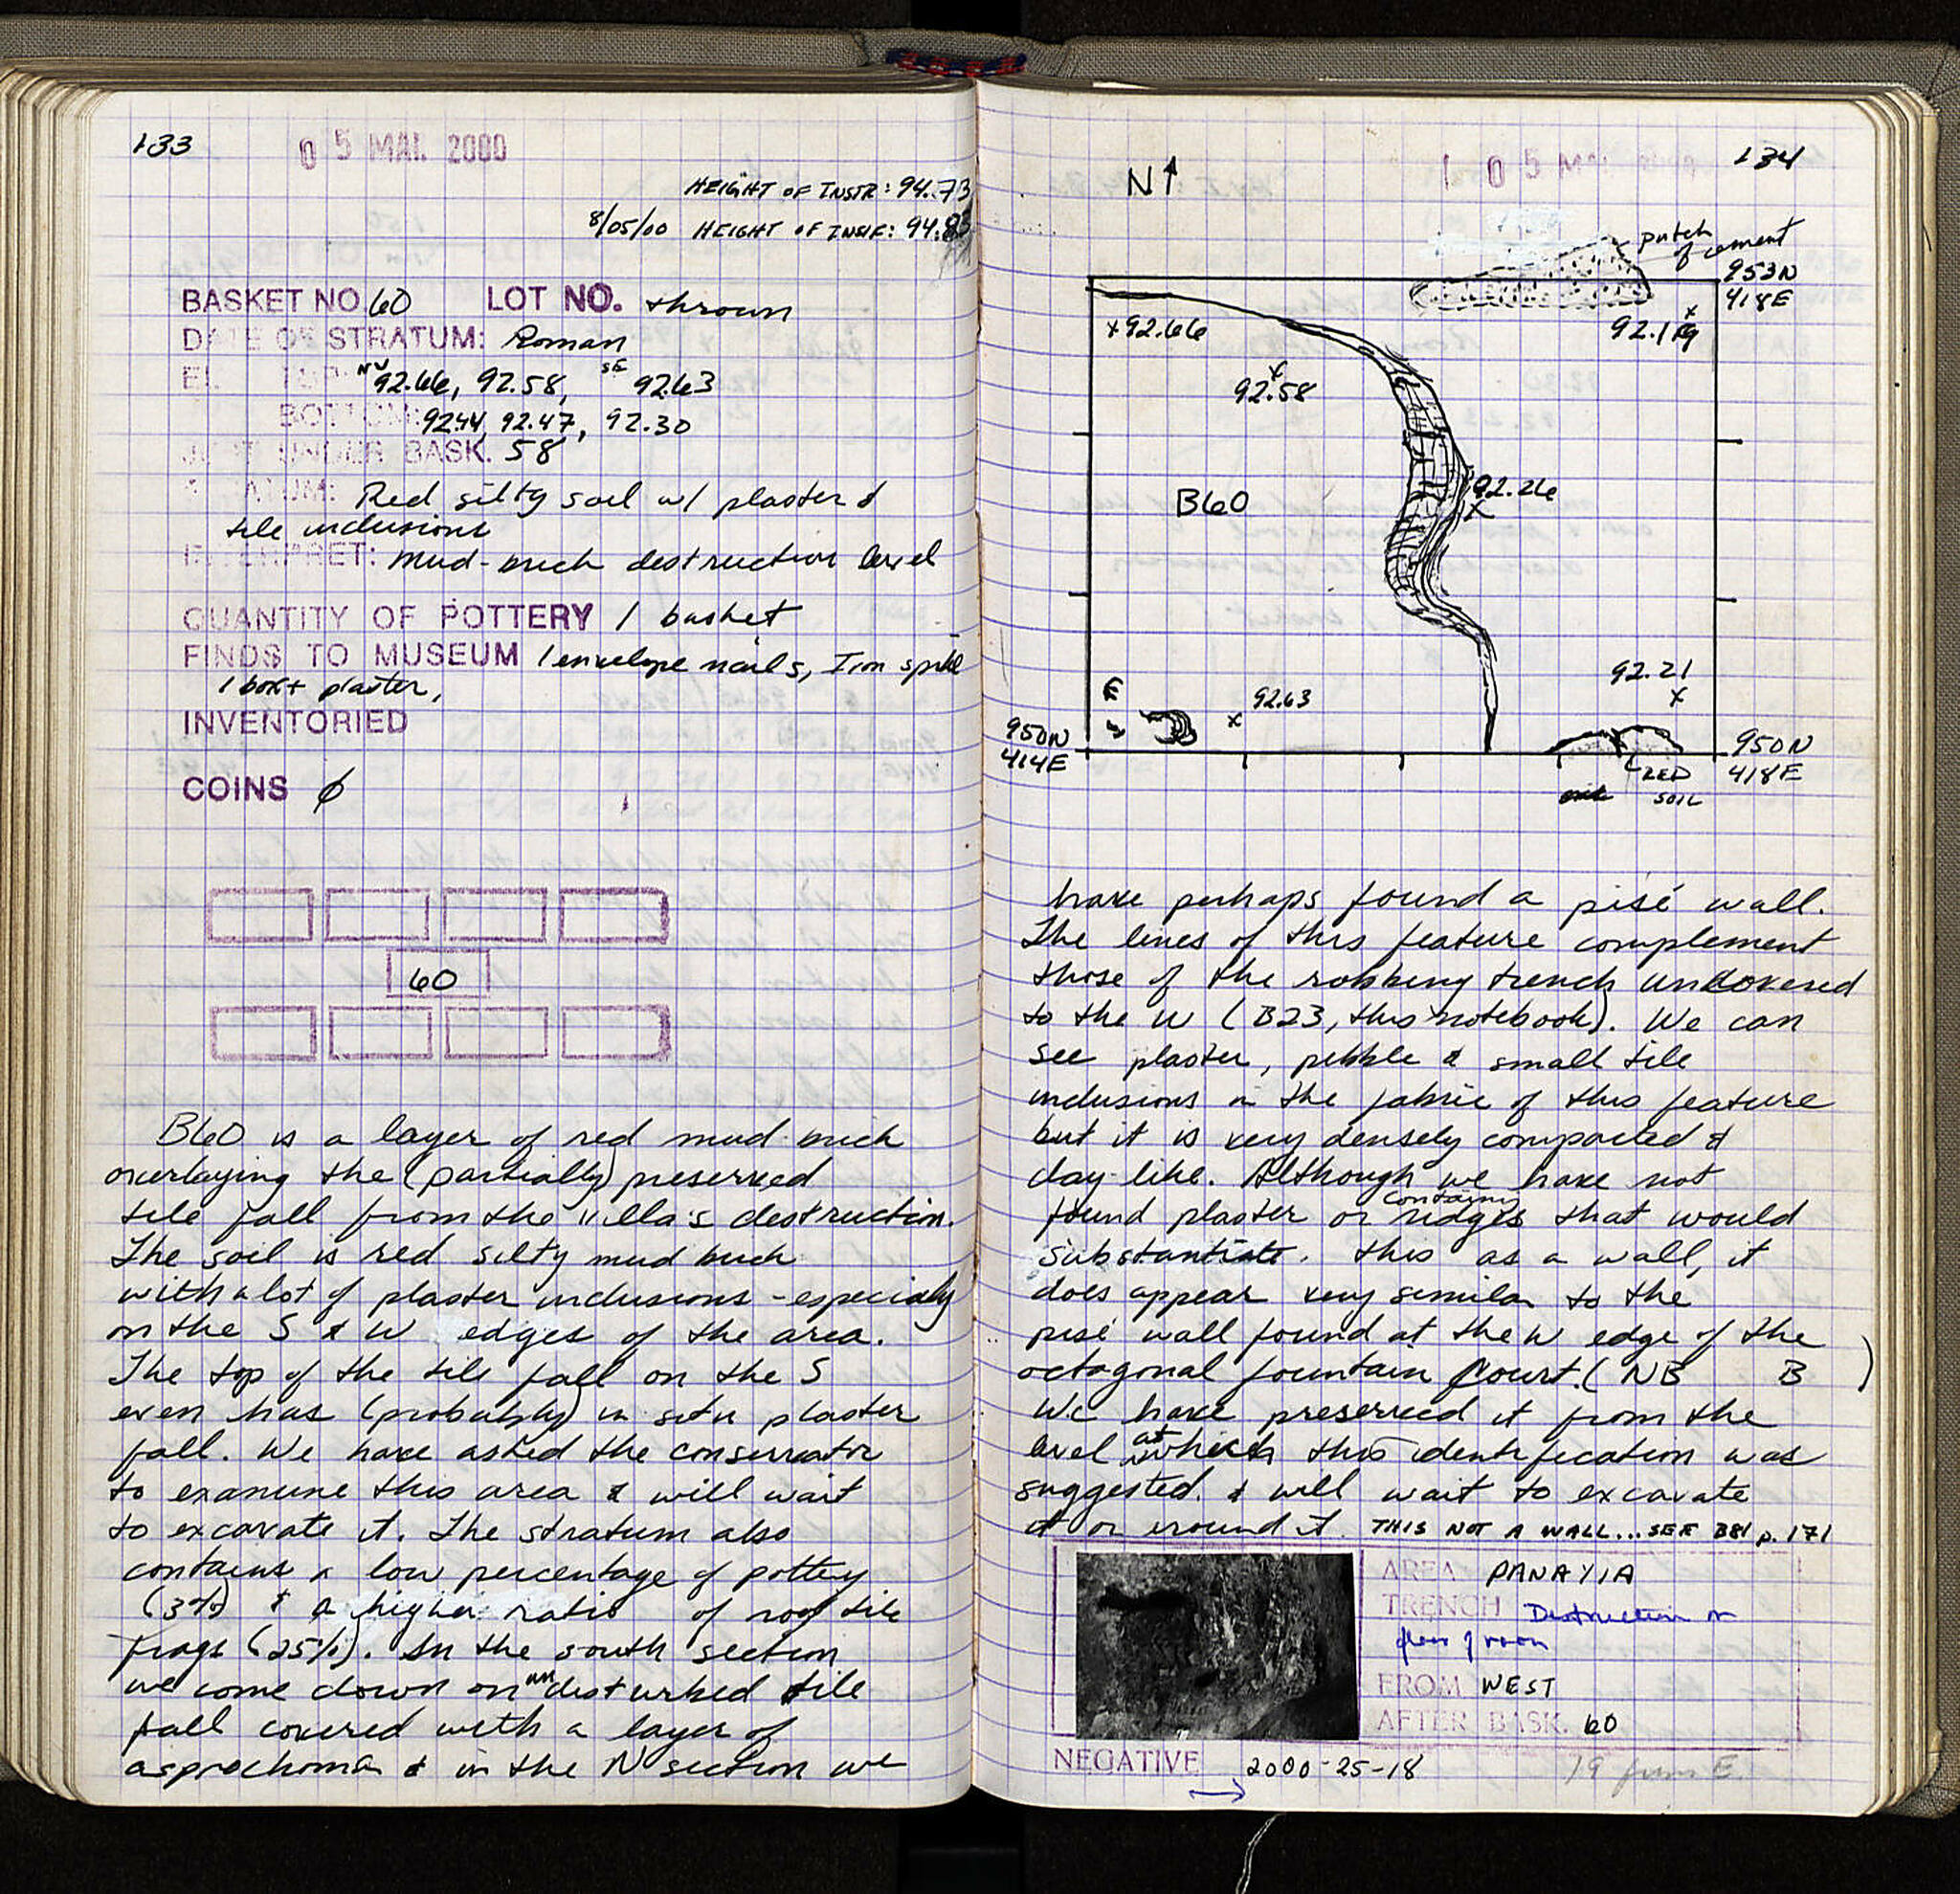 133
05 MAI 2000
HEIGHT OF INSTR: 94.73
8/05/00 HEIGHT OF INSTR: 94.83
BASKET NO 60 LOT NO. thrown
DATE OF STRATUM: Roman
NW 92.66, 92.58, SE 92.63
BOTTOM: 92.44, 92.47, 92.30
JUST UNDER BASK. 58
STRATUM: Red silty soil w/ plaster &
tile inclusions
INTERPRET: Mud-brick destruction level
QUANTITY OF POTTERY 1 basket
FINDS TO MUSEUM 1 envelope nails, Iron
1 box plaster,
INVENTORIED
COINS ∅
60
B60 is a layer of red mud brick
overlaying the (partially) preserved
tile fall from the villa's destruction.
The soil is red silty mud brick
with a lot of plaster inclusions - especially
on the S & W edges of the area.
The top of the tile fall on the S
even has (probably) in situ plaster
fall. We have asked the conservator
to examine this area & will wait
to excavate it. The stratum also
contains a low percentage of pottery
(3%) & a higher ratio of roof tile
frags (25%). In the south section
we come down on undisturbed tile
fall covered with a layer of
asprochoma & in the N section we
134
05 MAI 2000
N↑
patch
of cement
953N
418E
x92.66
x
92.19
x
92.58
B60
92.26
x
92.21
x
92.63
x
950N
414E
950N
418E
RED
SOIL
have perhaps found a pisé wall.
The lines of this feature complement
those of the robbing trench uncovered
to the W (B23, this notebook). We can
see plaster, pebble & small tile
inclusions in the fabric of this feature
but it is very densely compacted &
clay-like. Although we have not
found plaster or containing ridges that would
substantiate this as a wall, it
does appear very similar to the
pisé wall found at the W edge of the
octagonal fountain court. (NB B )
We have preserved it from the
level at which this identification was
suggested. & will wait to excavate
it or around it. THIS NOT A WALL... SEE B81 p. 171
AREA PANAYIA
TRENCH Destruction on
floor of room
FROM WEST
AFTER BASK. 60
NEGATIVE 2000-25-18
→
19 from E.